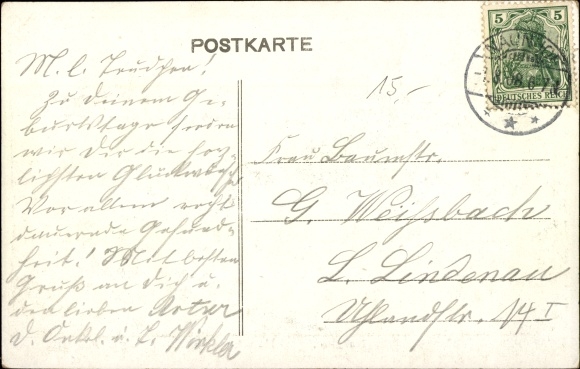 POSTKARTE
M. l. Trudchen!
Zu deinem Ge-
burtstage senden
wir Dir die herz-
lichsten Glückwünsche
Vor allem recht
dauernde Gesund-
heit! Mit besten
Gruß an Dich u.
den lieben Artur
d. Onkel. u. T. Winkler
15,-
5 5
DEUTSCHES REICH
Frau Baumstr.
G. Weißbach
L. Lindenau
Uhlandstr. 14 I